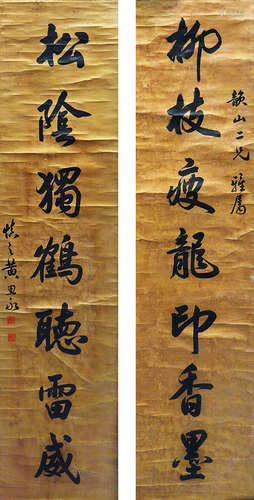 韻山二兄雅屬
柳枝瘦龍印香墨
松陰獨鶴聽雷威
慎之黃思永